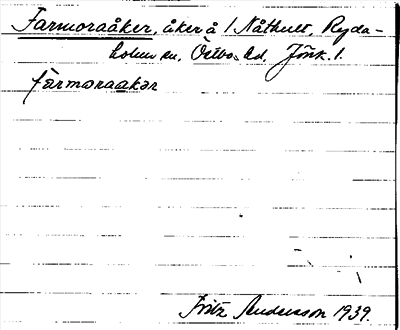 Farmoraåker, åker å 1 Nåthult, Ryda-
holms sn, Östbo hd. Jönk. l.
farmoraakər
Fritz Andersson 1939.